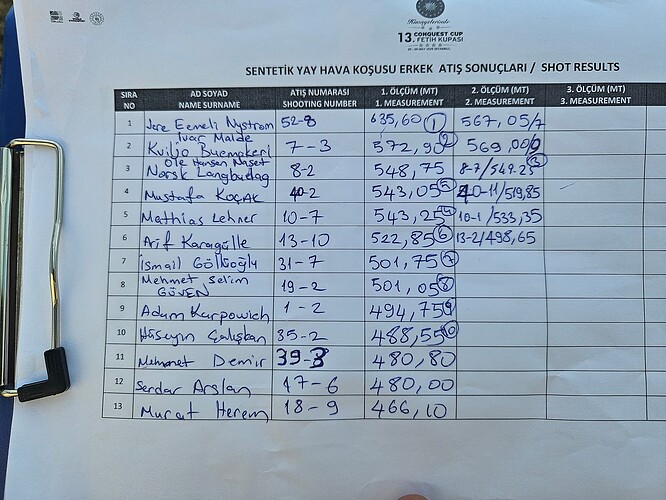 Himayelerinde
13. CONQUEST CUP
FETİH KUPASI
SENTETİK YAY HAVA KOŞUSU ERKEK ATIŞ SONUÇLARI / SHOT RESULTS
SIRA NO AD SOYAD NAME SURNAME ATIŞ NUMARASI SHOOTING NUMBER 1. ÖLÇÜM (MT) 1. MEASUREMENT 2. ÖLÇÜM (MT) 2. MEASUREMENT 3. ÖLÇÜM (MT) 3. MEASUREMENT
1 Jere Eemeli Nystrom 52-8 635,60 1 567,05/7
Ivar Malde
2 Kviljo Buemakeri 7-3 572,90 2 569,00
Ole Hansen Naset
3 Norsk Langbuelag 8-2 548,75 3 8-7/549.25
4 Mustafa KOÇAK 40-2 543,05 5 40-11/519,85
5 Mathias Lehner 10-7 543,25 4 10-1/533,35
6 Arif Karagülle 13-10 522,85 6 13-2/498,65
7 İsmail Göllüoğlu 31-7 501,75 7
8 Mehmet Selim GÜVEN 19-2 501,05 8
9 Adam Karpowich 1-2 494,75 9
10 Hüseyin Çalışkan 35-2 488,55 10
11 Mehmet Demir 39-3 480,80
12 Serdar Arslan 17-6 480,00
13 Murat Herem 18-9 466,10